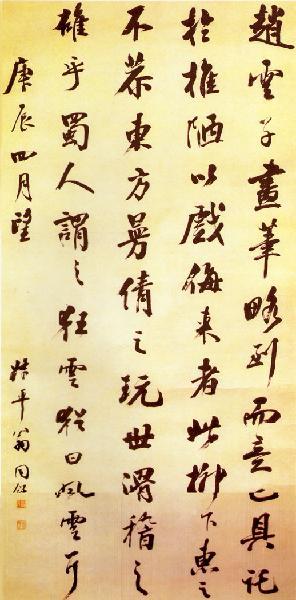 趙雲子畫筆略到而意已具託
於椎陋以戲侮來者此柳下惠之
不恭東方曼倩之玩世滑稽之
雄乎蜀人謂之狂雲猶曰風雲耳
庚辰四月望
叔平翁同龢